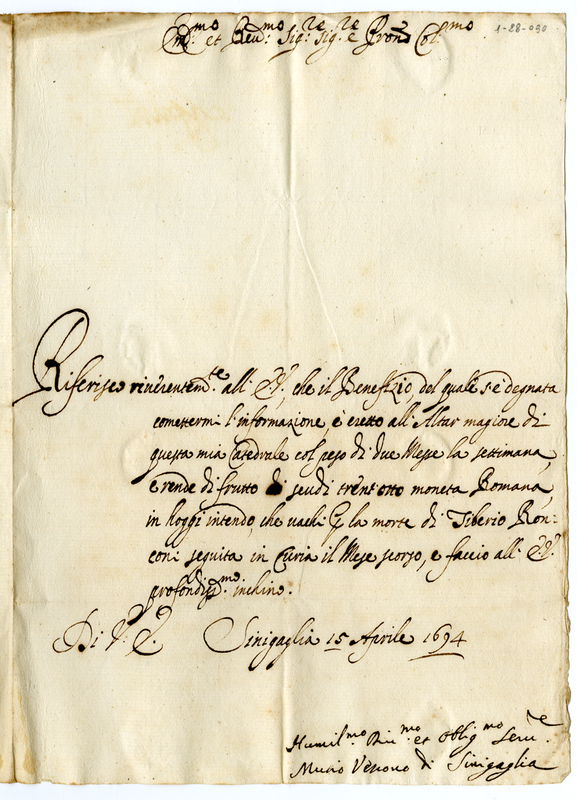 1-28-030
Em.mo et Reu.mo Sig.re Sig.re e Pron Col.mo
Riferisco riuerentem.te all' E.V., che il Benefizio, del quale s'è degnata
comettermi l'informazione, è eretto all'Altar magiore di
questa mia Catedrale col peso di due Messe la settimana,
e rende di frutto di scudi trent'otto moneta Romana,
in hoggi intendo, che uachi la morte di Tiberio Ron:
coni seguita in Curia il Mese scorso, e faccio all' E.V.
profondiss.mo inchino.
Di V.E. Sinigaglia 15 Aprile 1694
Humil.mo Diu.mo et oblig.mo Seru.e
Muzio Vescouo di Sinigaglia